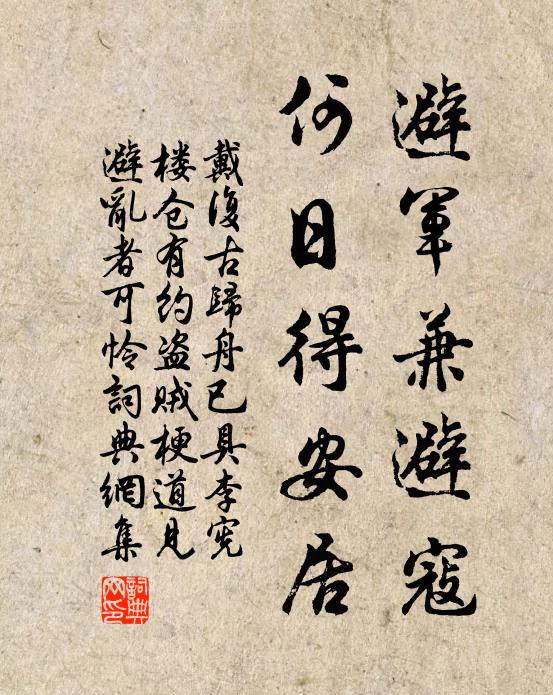 避军兼避寇
何日得安居
戴復古歸舟已具李宪
楼仓有约盗贼梗道見
避亂者可怜詞典網集
詞典網印